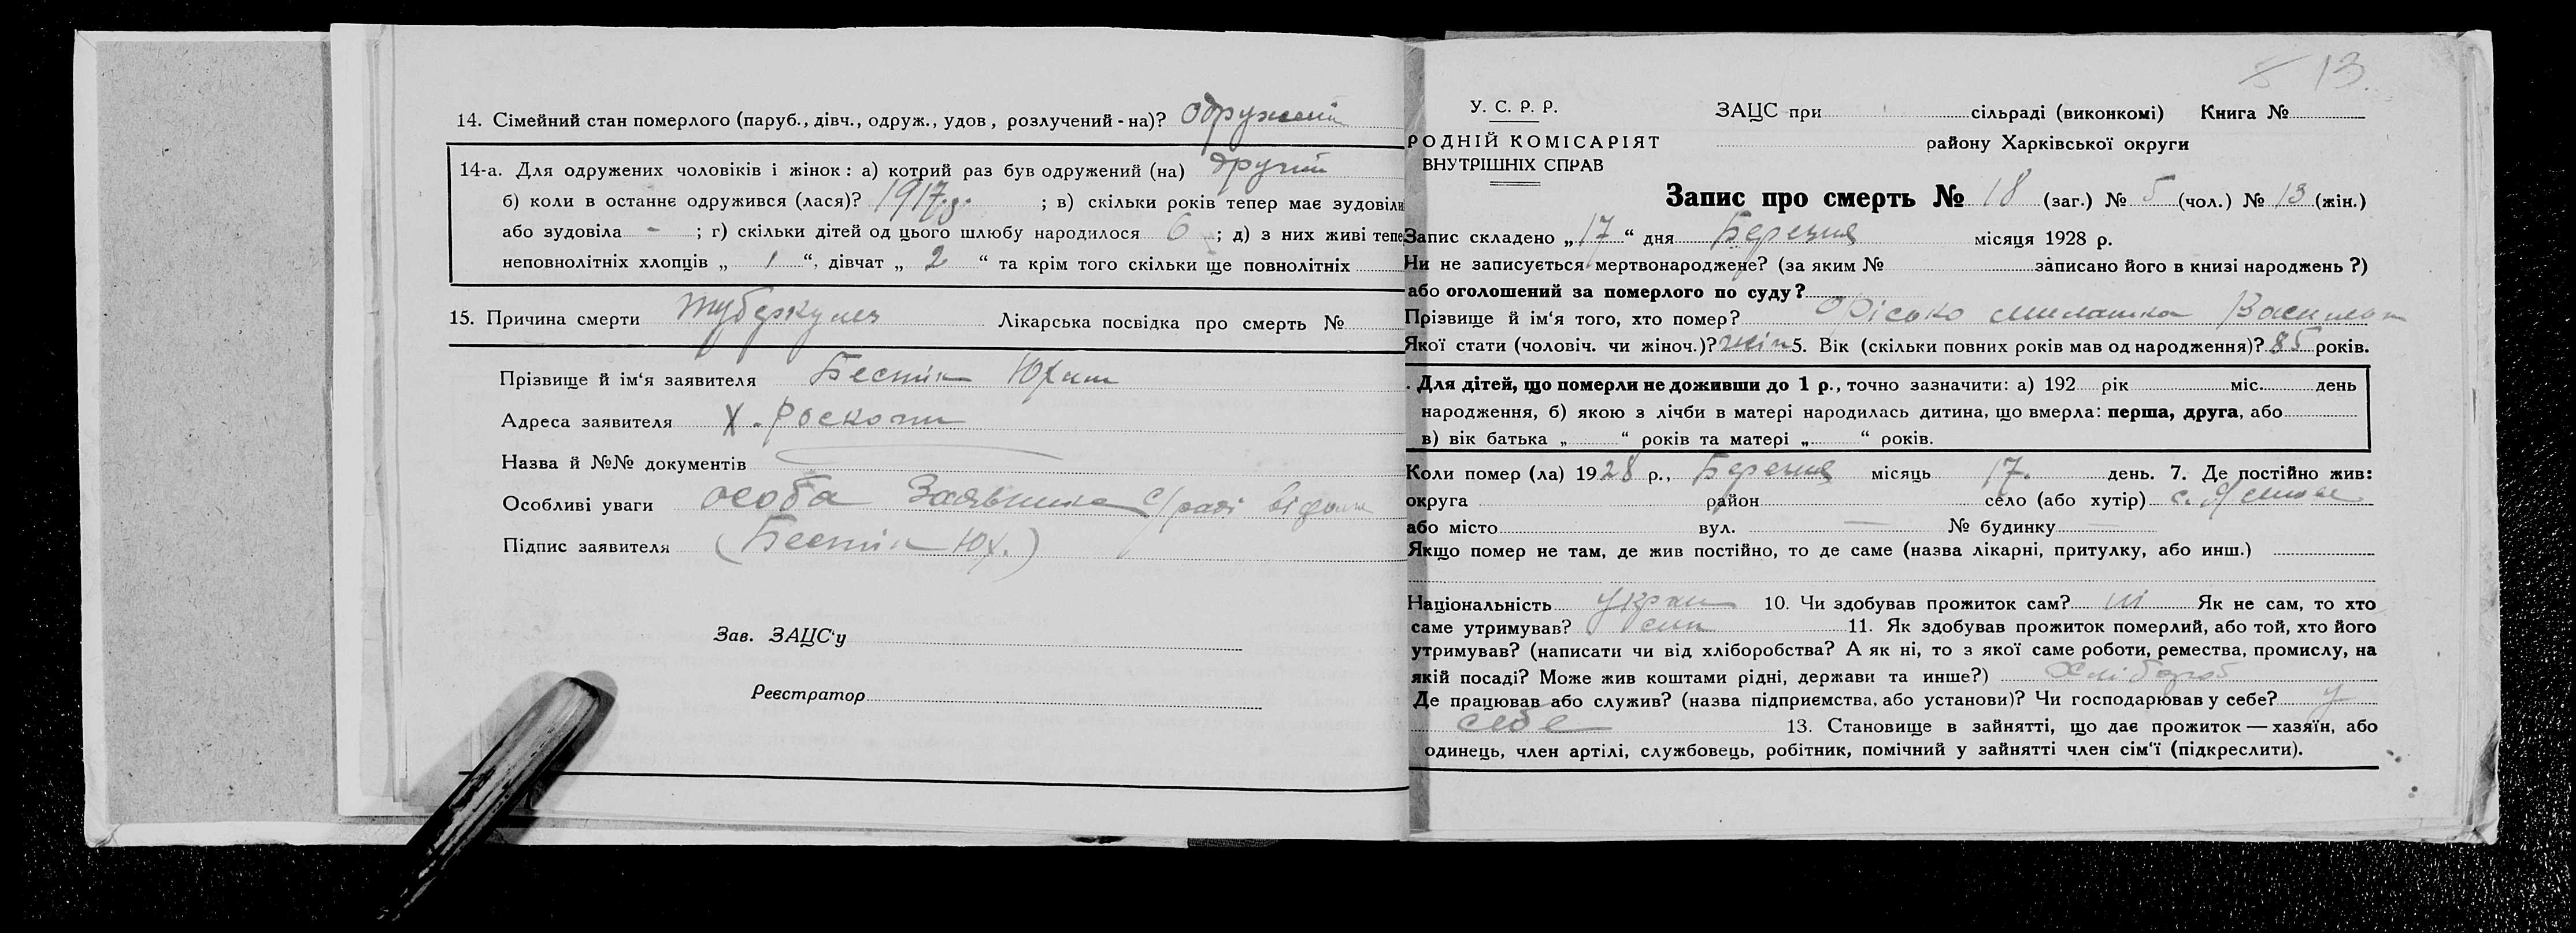 14. Сімейний стан померлого (паруб., дівч., одруж., удов, розлучений-на)? одружений
14-а. Для одружених чоловіків і жінок: а) котрий раз був одружений (на) другий
б) коли в останнє одружився (лася)? 1917 р. ; в) скільки років тепер має зудовіли
або зудовіла - ; г) скільки дітей од цього шлюбу народилося 6 ; д) з них живі тепе
неповнолітніх хлопців „ 1 “, дівчат „ 2 “ та крім того скільки ще повнолітніх
15. Причина смерти туберкульоз Лікарська посвідка про смерть №
Прізвище й ім‘я заявителя Бестік Юхим
Адреса заявителя х. Роскоти
Назва й №№ документів
Особливі уваги особа Заявника с/раді відома
Підпис заявителя (Бестік Юх.)
Зав. ЗАЦС‘у
Реєстратор
8 13.
У. С. Р. Р.
РОДНІЙ КОМІСАРІЯТ
ВНУТРІШНІХ СПРАВ
ЗАЦС при сільраді (виконкомі) Книга №
району Харківської округи
Запис про смерть № 18 (заг.) № 5 (чол.) № 13 (жін.)
Запис складено „17“ дня Березня місяця 1928 р.
Чи не записується мертвонароджене? (за яким № записано його в книзі народжень?)
або оголошений за померлого по суду?
Прізвище й ім‘я того, хто помер? Мелашка
Якої стати (чоловіч. чи жіноч.)? жін 5. Вік (скільки повних років мав од народження)? 85 років.
. Для дітей, що померли не доживши до 1 р., точно зазначити: а) 192 рік міс. день
народження, б) якою з лічби в матері народилась дитина, що вмерла: перша, друга, або
в) вік батька „ “ років та матері „ “ років.
Коли помер (ла) 1928 р., Березня місяць 17. день. 7. Де постійно жив:
округа район село (або хутір) с.
або місто вул. — № будинку —
Якщо помер не там, де жив постійно, то де саме (назва лікарні, притулку, або инш.)
Національність україн 10. Чи здобував прожиток сам? ні Як не сам, то хто
саме утримував? син 11. Як здобував прожиток померлий, або той, хто його
утримував? (написати чи від хліборобства? А як ні, то з якої саме роботи, ремества, промислу, на
якій посаді? Може жив коштами рідні, держави та инше?) Хлібороб
Де працював або служив? (назва підприємства, або установи)? Чи господарював у себе? у
себе 13. Становище в зайнятті, що дає прожиток — хазяїн, або
одинець, член артілі, службовець, робітник, помічний у зайнятті член сім‘ї (підкреслити).